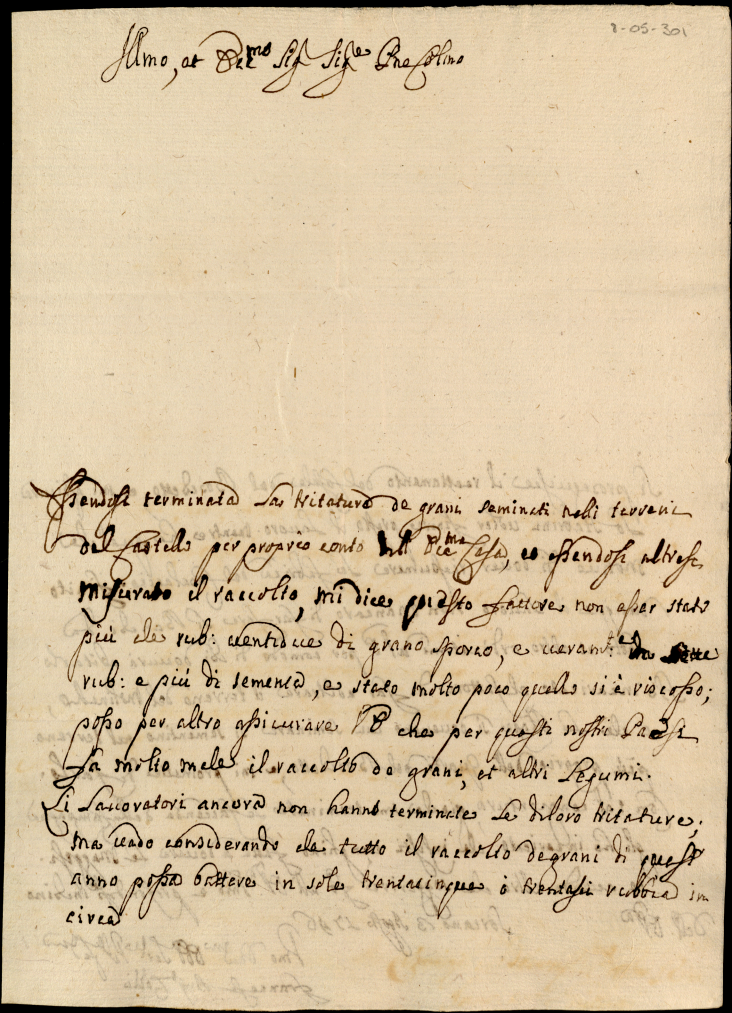 1-05-301
Illmo, et Sig Sig.re Pne Colmo
Essendosi terminata la tritatura de grani seminati nelli terreni
del Castello per proprio conto Casa, et essendosi altresi
misurato il raccolto, mi dice questo fattore non esser stato
più che rub: ventidue di grano sporco, e veram.te da sette
rub: e più di sementa, e stato molto poco quello si è riscosso;
posso per altro assicurare che per questi nostri Paesi
fà molto male il raccolto de grani, et altri Legumi.
Li Lavoratori ancora non hanno terminate le di loro tritature,
ma vado considerando che tutto il raccolto de grani di quest
anno possa battere in sole trentacinque ò trentasei rubbia in
circa